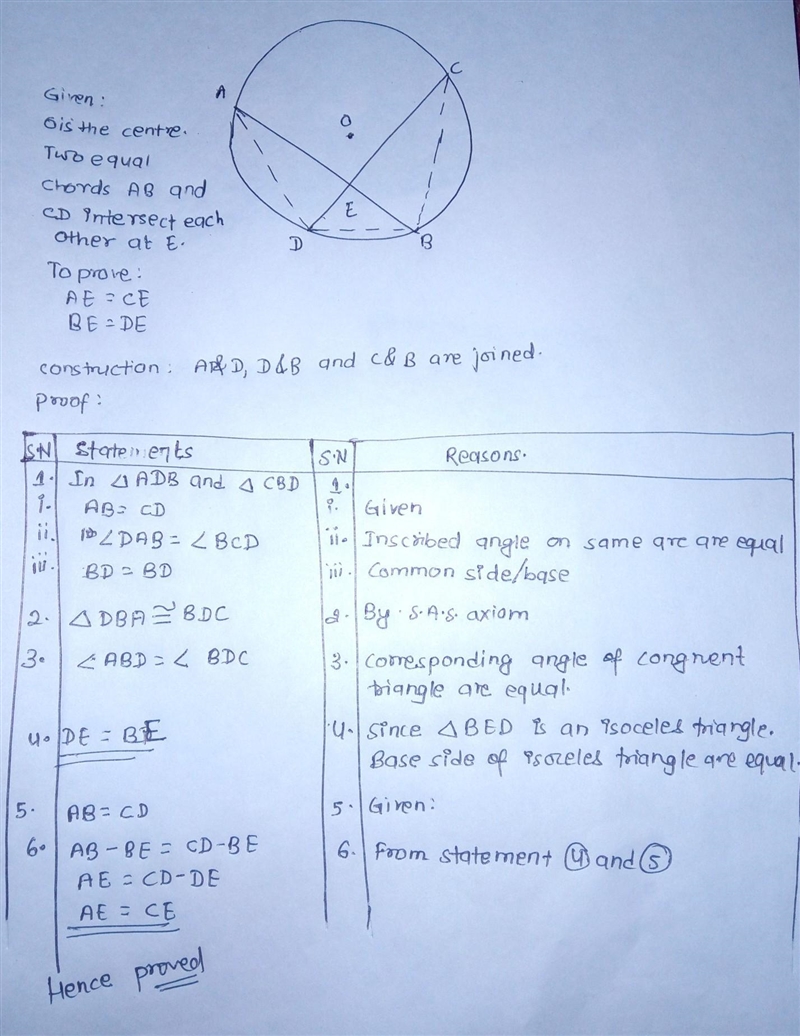 Given:
O is the centre.
Two equal
chords AB and
CD intersect each
other at E.
A
C
O
E
D
B
To prove:
AE = CE
BE = DE
construction: A&D, D&B and C&B are joined.
Proof:
S.N Statements S.N Reasons.
1. In △ ADB and △ CBD 1.
i. AB = CD i. Given
ii. ∠DAB = ∠BCD ii. Inscribed angle on same arc are equal
iii. BD = BD iii. Common side/base
2. △ DBA ≅ BDC 2. By S.A.S. axiom
3. ∠ABD = ∠ BDC 3. corresponding angle of congruent
triangle are equal.
4. DE = BE 4. Since △ BED is an isoceles triangle.
Base side of isoceles triangle are equal.
5. AB = CD 5. Given:
6. AB - BE = CD - BE 6. From statement ④ and ⑤
AE = CD - DE
AE = CE
Hence proved